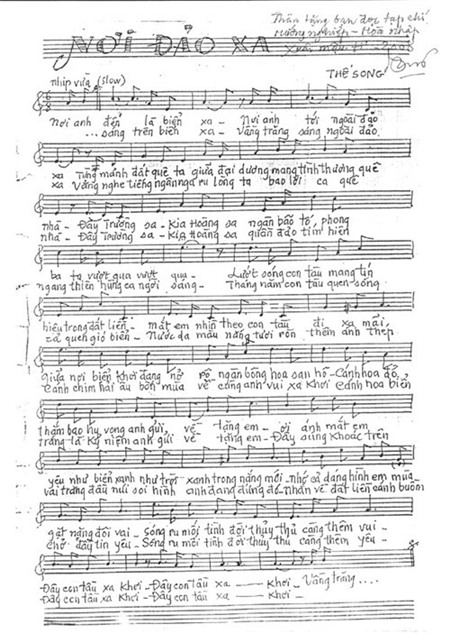 Thân tặng bạn đọc tạp chí
Hướng nghiệp - Hòa nhập
Xuân Mậu Tí - 2008
NƠI ĐẢO XA
nhịp vừa (slow)
THẾ SONG
Nơi anh đến là biển xa - Nơi anh tới ngoài đảo
... sáng trên biển xa - Vầng trăng sáng ngoài đảo
xa Từng mảnh đất quê ta giữa đại dương mang tình thương quê
xa Vẳng nghe tiếng ngân nga ru lòng ta bao lời ca quê
nhà - Đây Trường sa - Kia Hoàng sa ngàn bão tố, phong
nhà - Đây Trường sa - Kia Hoàng sa quần đảo tím hiên
ba ta vượt qua vượt qua - Lướt sóng con tàu mang tín
ngang thiên hùng ca ngời sáng - Tháng năm con tàu quen sóng
hiệu trong đất liền - mắt em nhìn theo con tàu đi xa mãi,
cả quen gió biển - Nước da màu nắng tươi rờn thêm ánh thép
Giữa nơi biển khơi đang nở rộ ngàn bông hoa san hô - Cánh hoa đỏ,
Cánh chim hải âu bốn mùa về cùng anh vui xa khơi Cánh hoa biển
thắm bao hy vọng anh gửi, về tặng em - ơi ánh mắt em
trắng là kỷ niệm anh gửi về tặng em - Đây súng khoác trên
yêu như biển xanh như trời xanh trong nắng mới - nhớ cả dáng hình em mùa
vai trăng đầu núi soi hình anh đang đứng đó - Nhắn về đất liền cánh buồm
gặt nặng đôi vai - Sóng ru mối tình đời thủy thủ càng thêm vui -
chở đầy tin yêu - Sóng ru mối tình đời thủy thủ càng thêm yêu -
Đây con tàu xa khơi - Đây con tàu xa — khơi - Vầng trăng ....
Đây con tàu xa khơi - Đây con tàu xa — khơi -